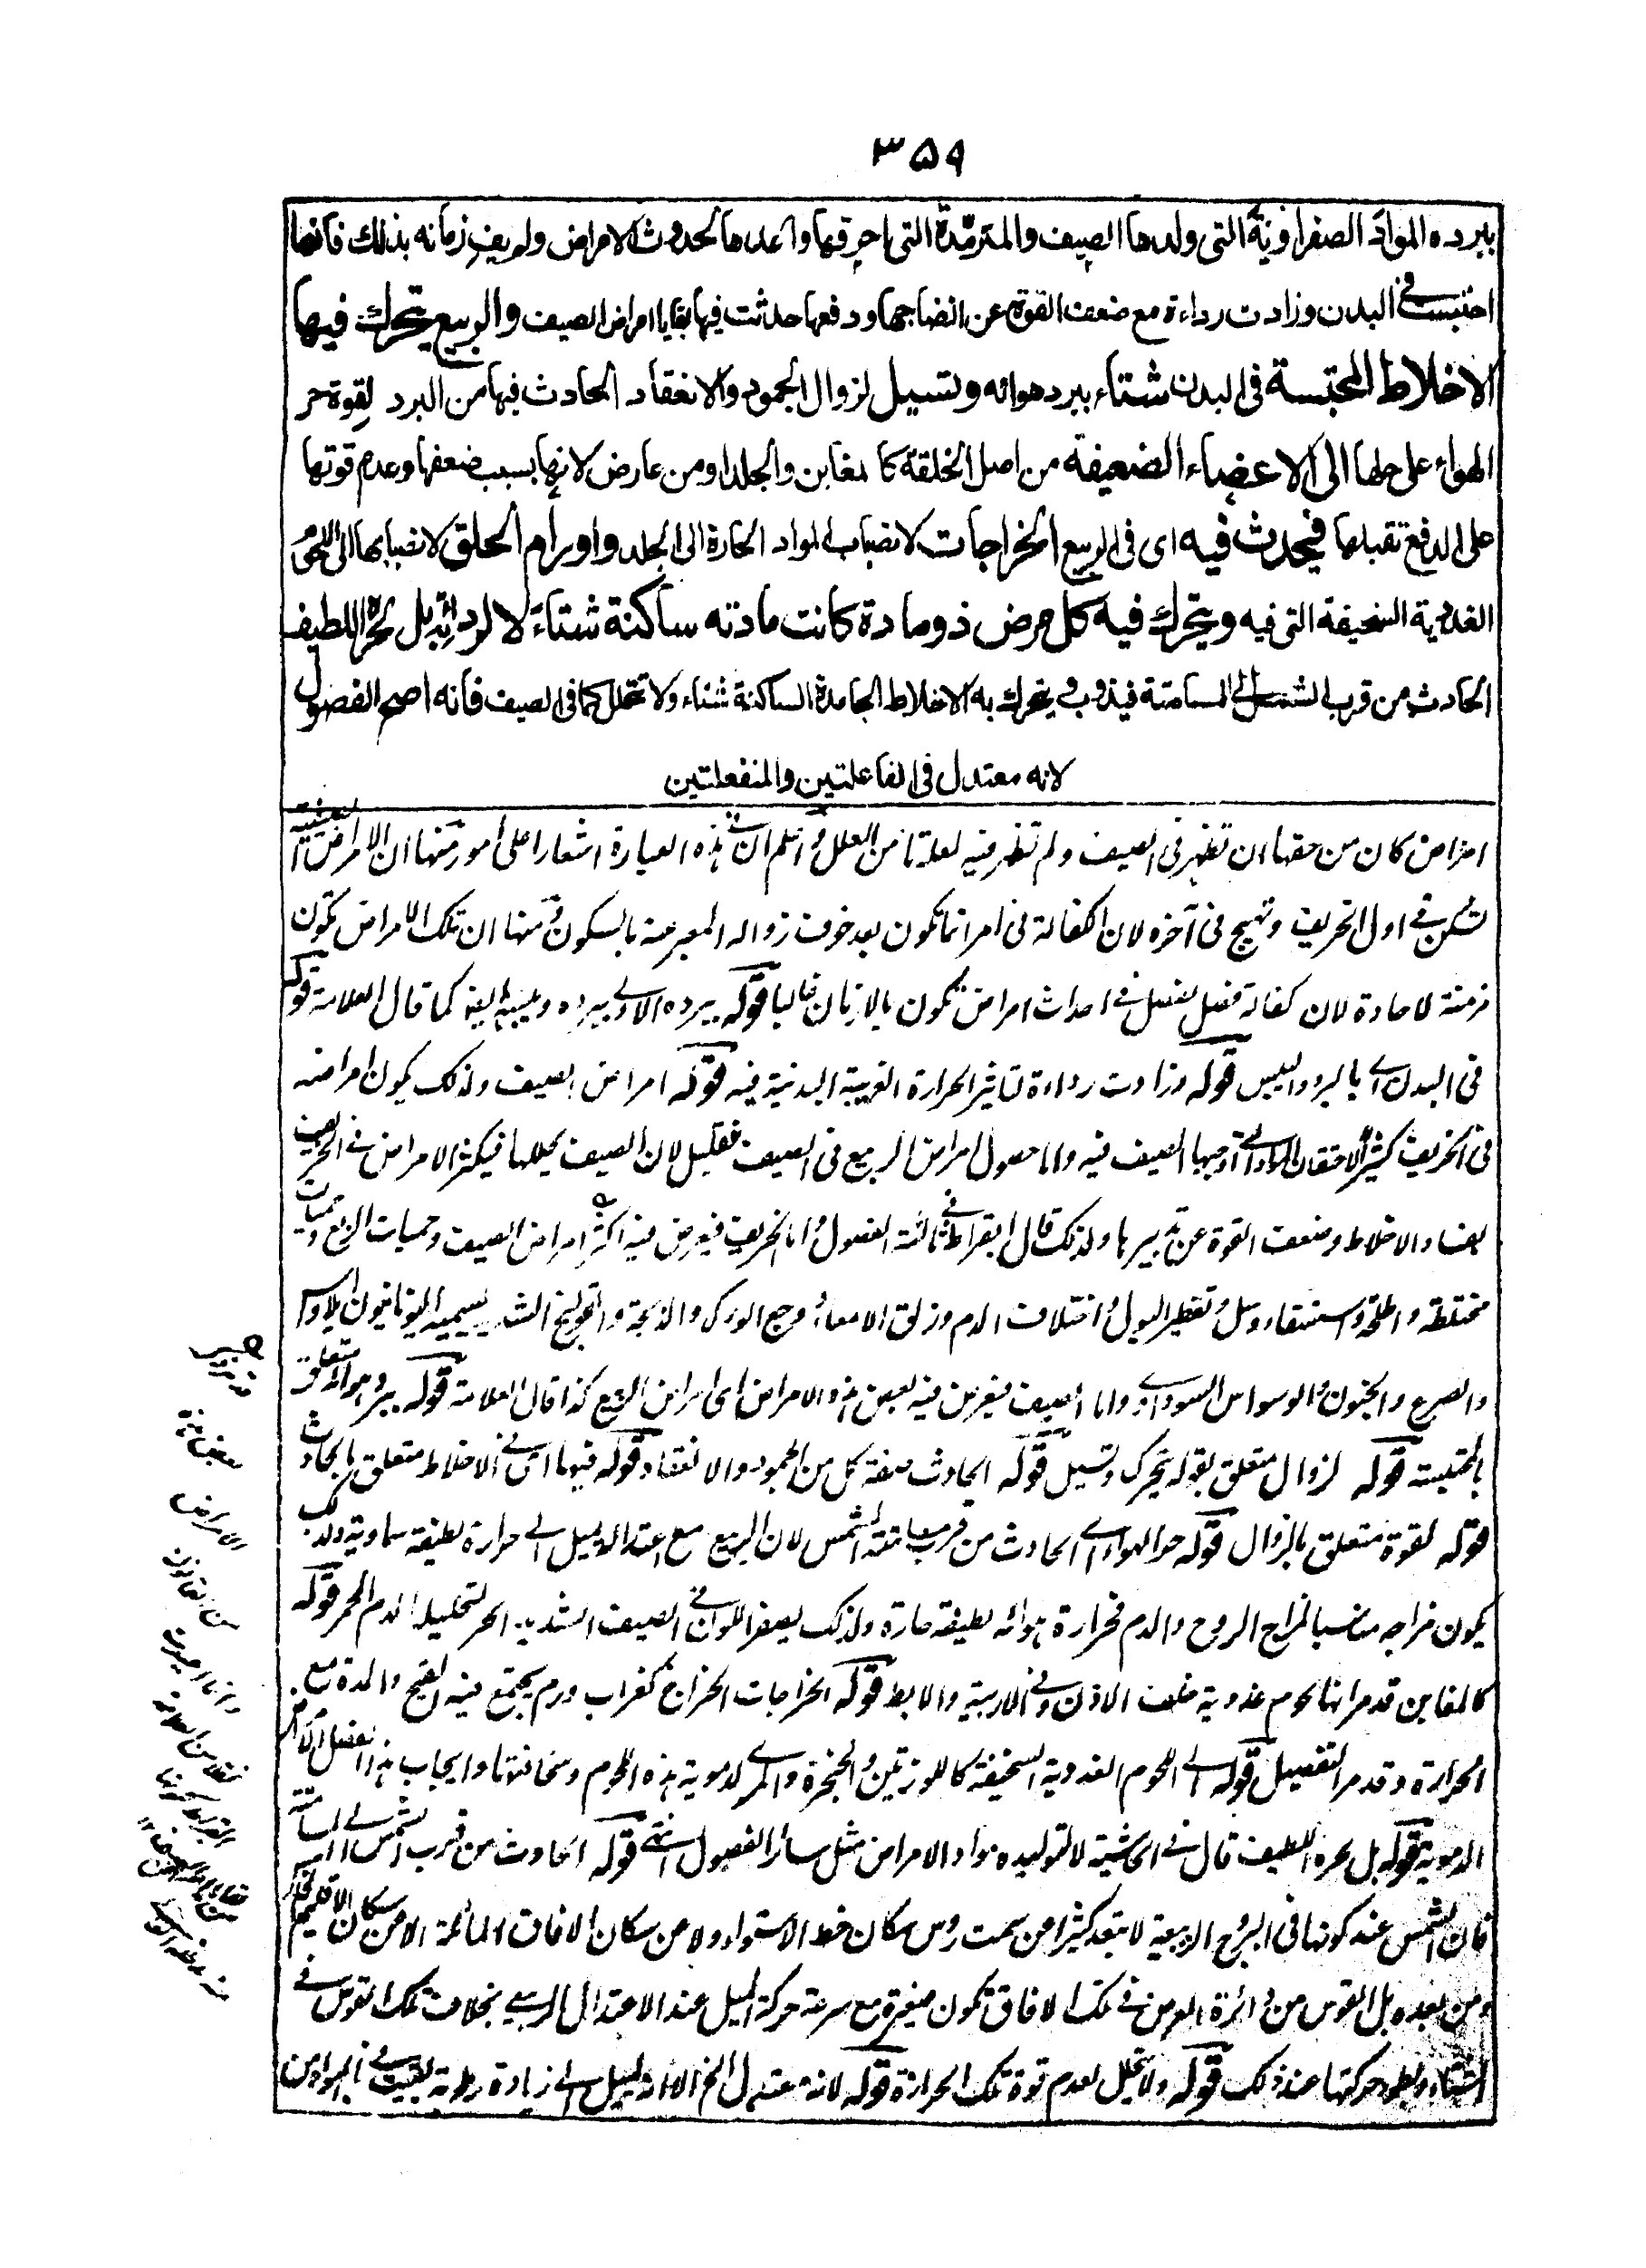 ٣٥٩
ببرده المواد الصفراوية التى ولدها الصيف والمترمدة التى احرقها واعدها لحدوث الامراض ولم يف زمانه بذلك فانها
احتبست فى البدن وزادت رداءة مع ضعف القوة عن انضاجها ودفعها حدثت فيها بقايا امراض الصيف والربيع يتحرك فيها
الاخلاط المحتبسة فى البدن شتاء ببرد هوائه وتسيل لزوال الجمود والانعقاد الحادث فيها من البرد لقوة حر
الهواء على حلها الى الاعضاء الضعيفة من اصل الخلقة كالمغابن والجلد او من عارض لانها بسبب ضعفها وعدم قوتها
على الدفع تقبلها فيحدث فيه اى فى الربيع الخراجات لانصباب المواد الحارة الى الجلد واورام الحلق لانصبابها الى اللحوم
الغددية السخيفة التى فيه ويتحرك فيه كل مرض ذو مادة كانت مادته ساكنة شتاء لا لرداءته بل لحره اللطيف
الحادث من قرب الشمس الى المسامتة فيذوب ويتحرك به الاخلاط الجامدة الساكنة شتاء ولا تتحلل كما فى الصيف فانه اصح الفصول
لانه معتدل فى الفاعلتين والمنفعلتين
امراض كان من حقها ان تظهر فى الصيف ولم تظهر فيه لعلة ما من العلل واعلم ان فى هذه العبارة اشعارا على امور منها ان الامراض
تسكن فى اول الخريف وتهيج فى آخره لان الكفالة فى امر انما تكون بعد خوف زواله المعبر عنه بالسكون ومنها ان تلك الامراض تكون
مزمنة لا حادة لان كفالة فصل لفصل فى احداث امراض تكون بالازمان غالبا قوله ببرده الاولى ببرده ويبسه ايضا كما قال العلامة قوله
فى البدن اى بالبرد واليبس قوله وزادت رداءة لتاثير الحرارة الغريبة البدنية فيه قوله امراض الصيف ولذلك يكون امراضه
فى الخريف كثيرة لاحتقان المواد التى اوجبها الصيف فيه واما حصول امراض الربيع فى الصيف فقليل لان الصيف يحللها فيكثر الامراض فى الخريف
لفساد الاخلاط وضعف القوة عن تدبيرها ولذلك قال ابقراط فى ثالثة الفصول واما الخريف فيعرض فيه اكثر امراض الصيف وحميات الربع وحميات
مختلطة واطحلة واستسقاء وسل وتقطير البول واختلاف الدم وزلق الامعاء ووجع الورك والذبحة والقولنج الشديد يسميه اليونانيون ايلاوس
والصرع والجنون والوسواس السوداوى واما الصيف فيعرض فيه بعض هذه الامراض اى امراض الربيع كذا قال العلامة قوله ببرد هوائه متعلق
بالمحتبسة قوله لزوال متعلق بقوله يتحرك وتسيل قوله الحادث صفة كل من الجمود والانعقاد قوله فيها اى فى الاخلاط متعلق بالحادث
قوله لقوة متعلق بالزوال قوله حر الهواء اى الحادث من قرب مسامتة الشمس لان الربيع مع اعتداله يميل الى حرارة لطيفة سماوية ولذلك
يكون مزاجه مناسبا لمزاج الروح والدم فحرارة هوائه لطيفة حارة ولذلك يصفر اللون فى الصيف الشديد الحر لتحليله الدم الاحمر قوله
كالمغابن قد مر انها لحوم غددية خلف الاذن وفى الاربية والابط قوله الخراجات الخراج كغراب ورم يجتمع فيه القيح والمدة مع
الحرارة وقد مر التفصيل قوله الى اللحوم الغددية السخيفة كاللوزتين والحنجرة والمرى لدموية هذه اللحوم وسخافتها وايجاب هذا الفصل الامراض
الدموية قوله بل لحره اللطيف قال فى الحاشية لا لتوليده مواد الامراض مثل سائر الفصول انتهى قوله الحادث من قرب الشمس الى المسامتة
فان الشمس عند كونها فى البروج الربيعية لا تبعد كثيرا من سمت رؤس سكان خط الاستواء ولا من سكان الافاق المائلة الا من سكان الاقليم
ومن بعده بل القوس من دائرة العرض فى تلك الافاق تكون صغيرة مع سرعة حركة الميل عند الاعتدال الربيعى بخلاف تلك القوس فى
الشتاء وبطوء حركتها عند ذلك قوله ولا تتحلل لعدم قوة تلك الحرارة قوله لانه معتدل الخ الا انه يميل الى زيادة رطوبة
بعض هذه
الامراض